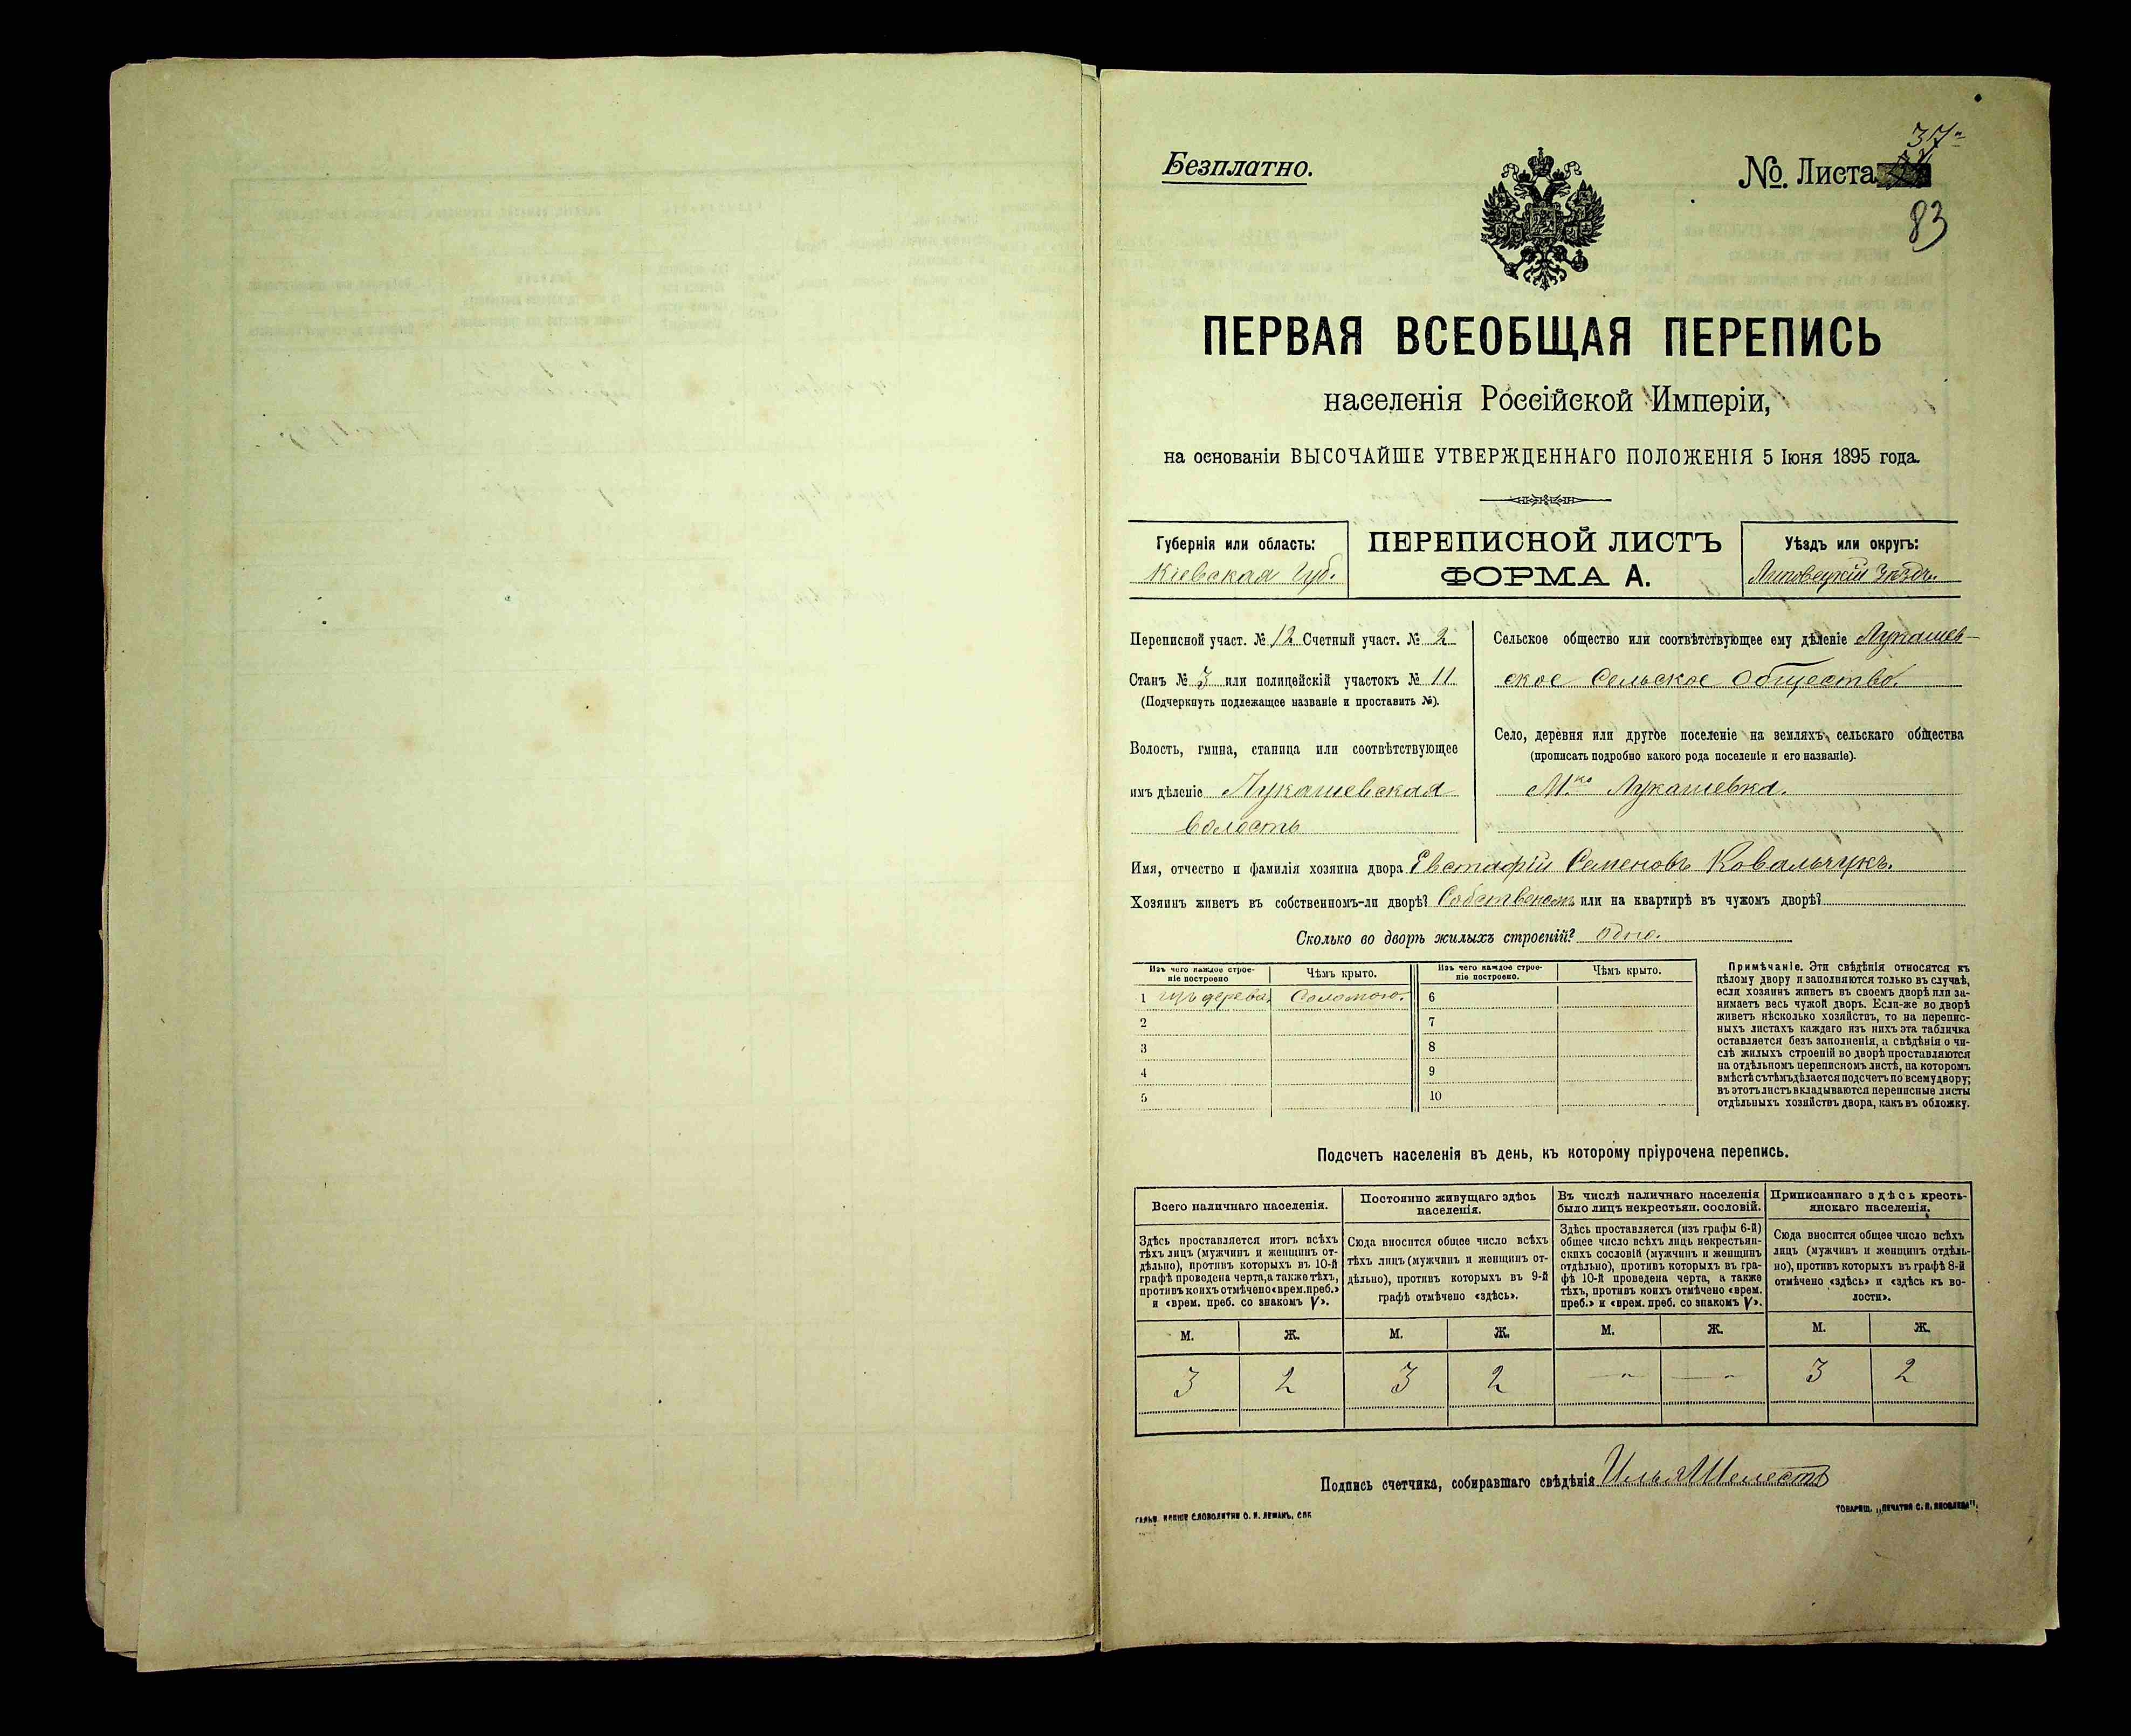 Безплатно.
№. Листа
37
83
ПЕРВАЯ ВСЕОБЩАЯ ПЕРЕПИСЬ
населенія Россійской Имперіи,
на основаніи ВЫСОЧАЙШЕ УТВЕРЖДЕННАГО ПОЛОЖЕНІЯ 5 Іюня 1895 года.
Губернія или область:
Кіевская Губ.
ПЕРЕПИСНОЙ ЛИСТЪ
ФОРМА А.
Уѣздъ или округъ:
Липовецкій Уѣздъ.
Переписной участ. № 12 Счетный участ. № 2
Станъ № 3 или полицейскій участокъ № 11
(Подчеркнуть подлежащое названіе и проставить №).
Волость, гмина, станица или соотвѣтствующее
имъ дѣленіе Лукашевская
волость
Сельское общество или соотвѣтствующее ему дѣленіе Лукашев-
ское Сельское Общество.
Село, деревня или другое поселеніе на земляхъ сельскаго общества
(прописать подробно какого рода поселеніе и его названіе).
М.ко Лукашевка.
Имя, отчество и фамилія хозяина двора Евстафій Семеновъ Ковальчукъ.
Хозяинъ живетъ въ собственномъ-ли дворѣ? Собственомъ или на квартирѣ въ чужомъ дворѣ?
Сколько во дворѣ жилыхъ строеній? одно.
Изъ чего каждое строе-
ніе построено
Чѣмъ крыто.
Изъ чего каждое строе-
ніе построено.
Чѣмъ крыто.
1 изъ дерева. Соломою. 6
2 7
3 8
4 9
5 10
Примѣчаніе. Эти свѣдѣнія относятся къ
цѣлому двору и заполняются только въ случаѣ,
если хозяинъ живетъ въ своемъ дворѣ или за-
нимаетъ весь чужой дворъ. Если-же во дворѣ
живетъ нѣсколько хозяйствъ, то на перепис-
ныхъ листахъ каждаго изъ нихъ эта табличка
оставляется безъ заполненія, а свѣдѣнія о чи-
слѣ жилыхъ строеній во дворѣ проставляются
на отдѣльномъ переписномъ листѣ, на которомъ
вмѣстѣ съ тѣмъ дѣлается подсчетъ по всему двору;
въ этотъ листъ вкладываются переписные листы
отдѣльныхъ хозяйствъ двора, какъ въ обложку.
Подсчетъ населенія въ день, къ которому пріурочена перепись.
Всего наличнаго населенія.
Здѣсь проставляется итогъ всѣхъ
тѣхъ лицъ (мужчинъ и женщинъ от-
дѣльно), противъ которыхъ въ 10-й
графѣ проведена черта, а также тѣхъ,
противъ коихъ отмѣчено «врем. преб.»
и «врем. преб. со знакомъ V».
Постоянно живущаго здѣсь
населенія.
Сюда вносится общее число всѣхъ
тѣхъ лицъ (мужчинъ и женщинъ от-
дѣльно), противъ которыхъ въ 9-й
графѣ отмѣчено «здѣсь».
Въ числѣ наличнаго населенія
было лицъ некрестьян. сословій.
Здѣсь проставляется (изъ графы 6-й)
общее число всѣхъ лицъ некрестьян-
скихъ сословій (мужчинъ и женщинъ
отдѣльно), противъ которыхъ въ гра-
фѣ 10-й проведена черта, а также
тѣхъ, противъ коихъ отмѣчено «врем.
преб.» и «врем. преб. со знакомъ V».
Приписаннаго здѣсь кресть-
янскаго населенія.
Сюда вносится общее число всѣхъ
лицъ (мужчинъ и женщинъ отдѣль-
но), противъ которыхъ въ графѣ 8-й
отмѣчено «здѣсь» и «здѣсь къ во-
лости».
М. Ж. М. Ж. М. Ж. М. Ж.
3 2 3 2 — " — — " — 3 2
Подпись счетчика, собиравшаго свѣдѣнія Илья Шелестъ
ГАЛЬВ. КЛИШЕ СЛОВОЛИТНИ О. И. ЛЕМАНЪ, СПБ.
ТОВАРИЩ. „ПЕЧАТНЯ С. П. ЯКОВЛЕВА".